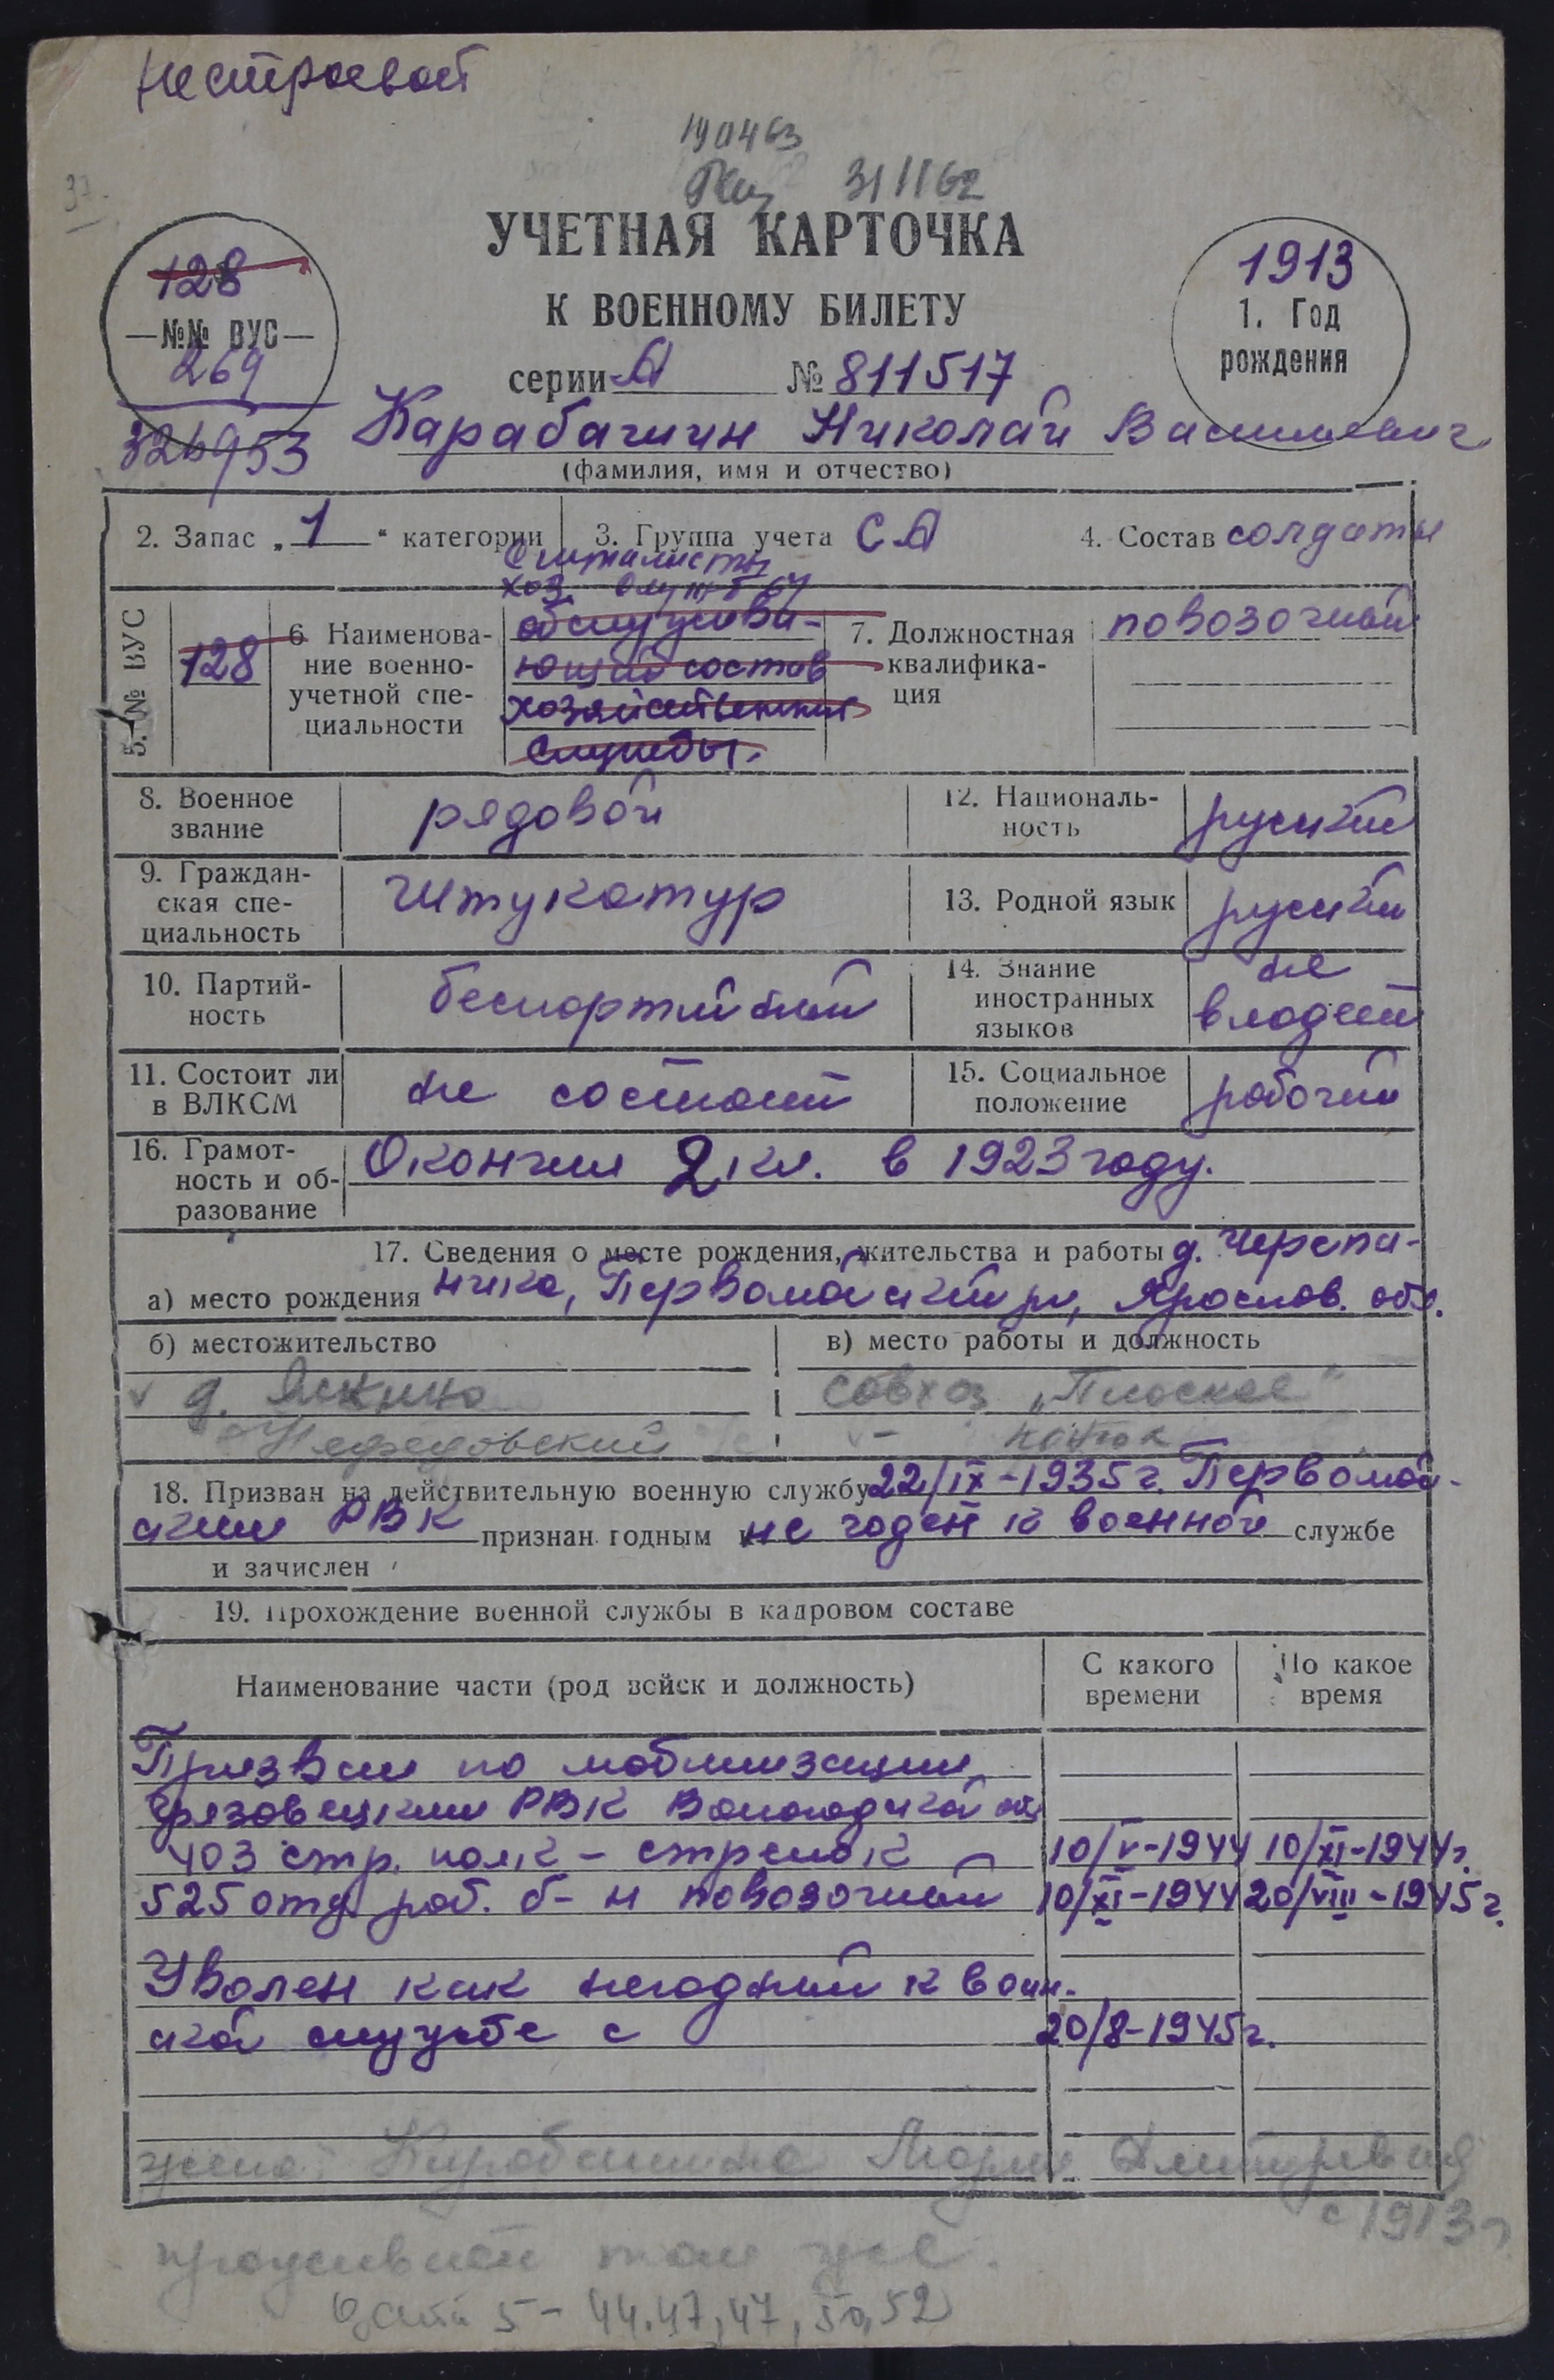 Нестроевой
190463
31 II 62
37
УЧЕТНАЯ КАРТОЧКА
К ВОЕННОМУ БИЛЕТУ
серии А № 811517
128
№№ ВУС
269
326953
1913
1. Год
рождения
Карабашин Николай Васильевич
(фамилия, имя и отчество)
2. Запас „1“ категории
3. Группа учета СА
4. Состав солдаты
5. № ВУС
128
6 Наименова-
ние военно-
учетной спе-
циальности
Специалисты
хоз. службы
обслужива-
ющий состав
хозяйственной
службы.
7. Должностная
квалифика-
ция
повозочный
8. Военное
звание
рядовой
12. Националь-
ность
русский
9. Граждан-
ская спе-
циальность
штукатур
13. Родной язык
русский
10. Партий-
ность
беспартийный
14. Знание
иностранных
языков
не
владеет
11. Состоит ли
в ВЛКСМ
не состоит
15. Социальное
положение
рабочий
16. Грамот-
ность и об-
разование
Окончил 2 кл. в 1923 году.
17. Сведения о месте рождения, жительства и работы д. Черепа-
а) место рождения ника, Первомайский р-н, Ярослав. обл.
б) местожительство
в) место работы и должность
д. Яскино
совхоз „Плоское“
Нефедовский
конюх
18. Призван на действительную военную службу 22/IX-1935 г. Первомай-
ским РВК признан годным не годен к военной службе
и зачислен
19. Прохождение военной службы в кадровом составе
Наименование части (род войск и должность)
С какого
времени
По какое
время
Призван по мобилизации
Грязовецким РВК Вологодской обл
403 стр. полк - стрелок 10/V-1944 10/XI-1944 г.
525 отд. раб. б-н повозочный 10/XI-1944 20/VIII-1945 г.
Уволен как негодный к воин.
ской службе с 20/8-1945 г.
жена: Карабашина Мария Дмитриевна
с 1913 г
проживает там же.
дети 5 - 44, 47, 47, 50, 52